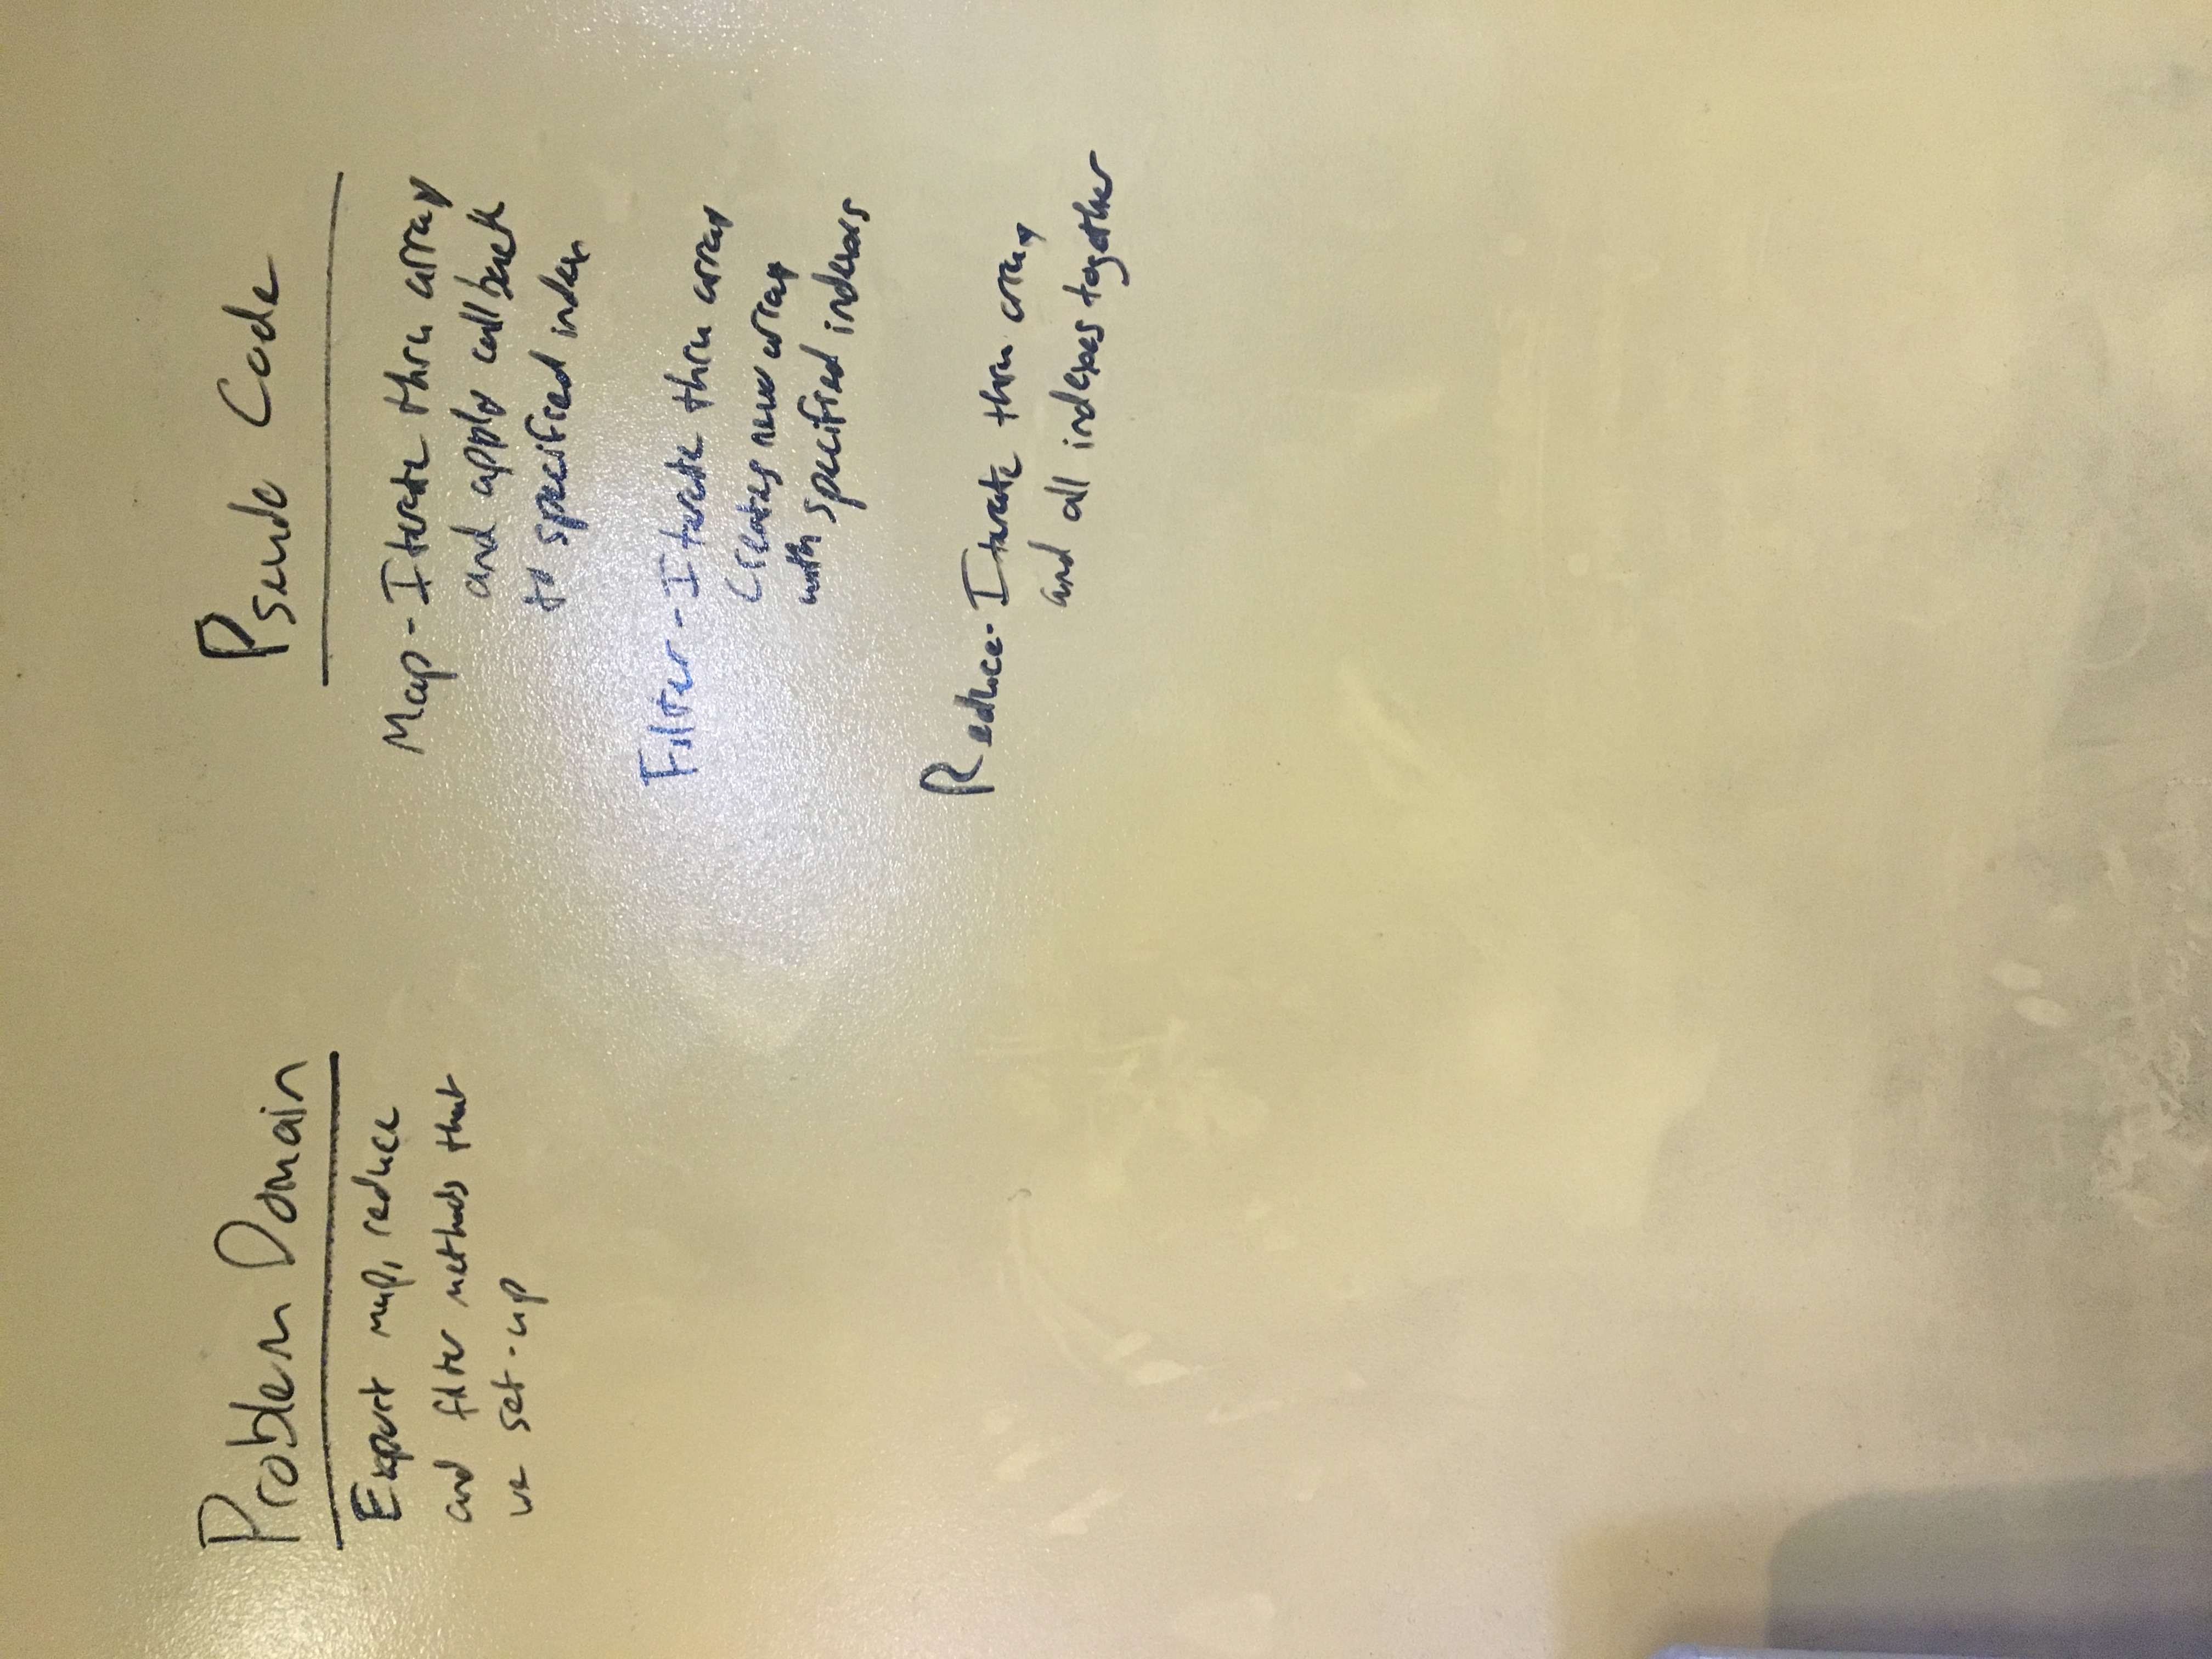 Problem Domain
Export map, reduce
and filter methods that
we set-up
Pseudo Code
Map - Iterate thru array
and apply callback
to specified index
Filter - Iterate thru array
Creates new array
with specified indexes
Reduce - Iterate thru array
and all indexes together